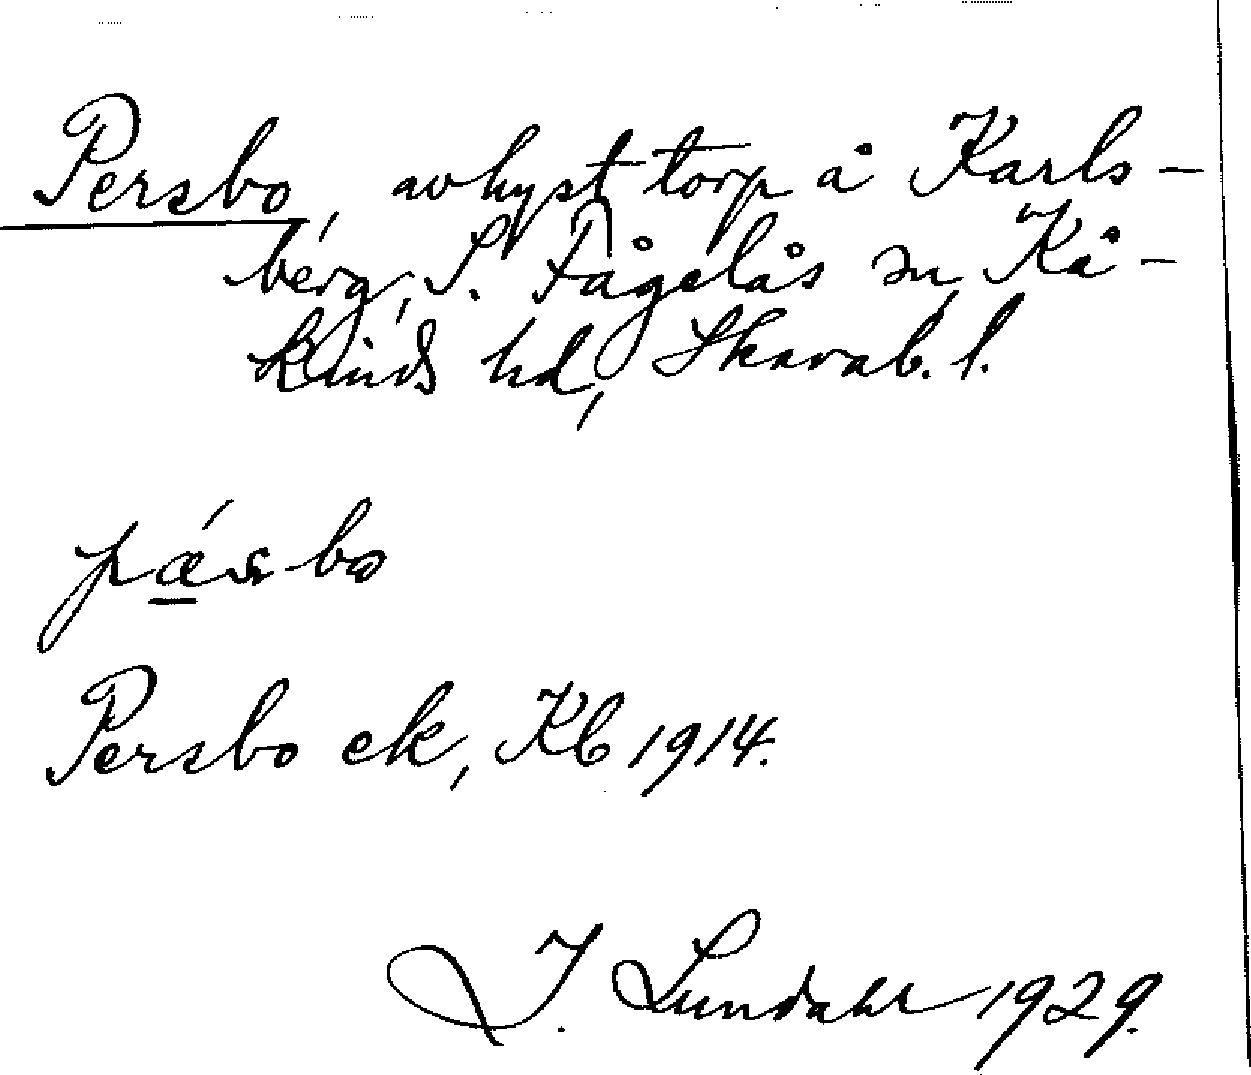 Persbo, avhyst torp å Karls-
berg, S. Fågelås sn, Kå-
kinds hd, Skarab. l.
pǽsbo
Persbo ek, Kb 1914.
I. Lundahl 1929.